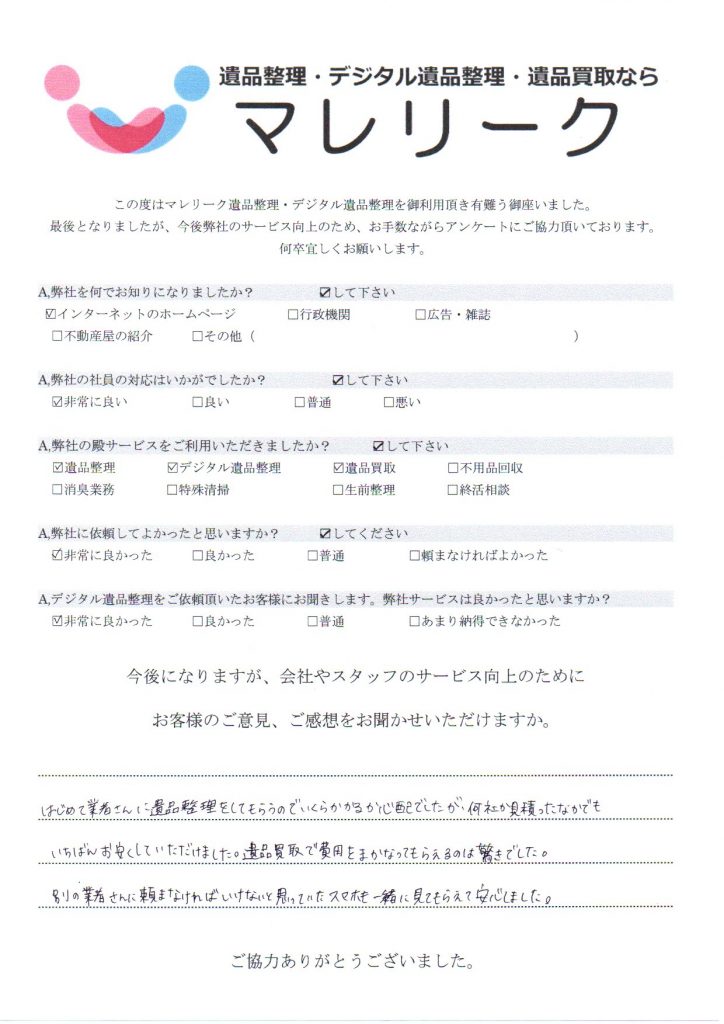 遺品整理・デジタル遺品整理・遺品買取なら
マレリーク
この度はマレリーク遺品整理・デジタル遺品整理を御利用頂き有難う御座いました。
最後となりましたが、今後弊社のサービス向上のため、お手数ながらアンケートにご協力頂いております。
何卒宜しくお願いします。
A,弊社を何でお知りになりましたか? ☑して下さい
☑インターネットのホームページ □行政機関 □広告・雑誌
□不動産屋の紹介 □その他（ ）
A,弊社の社員の対応はいかがでしたか? ☑して下さい
☑非常に良い □良い □普通 □悪い
A,弊社の殿サービスをご利用いただきましたか? ☑して下さい
☑遺品整理 ☑デジタル遺品整理 ☑遺品買取 □不用品回収
□消臭業務 □特殊清掃 □生前整理 □終活相談
A,弊社に依頼してよかったと思いますか? ☑してください
☑非常に良かった □良かった □普通 □頼まなければよかった
A,デジタル遺品整理をご依頼頂いたお客様にお聞きします。弊社サービスは良かったと思いますか?
☑非常に良かった □良かった □普通 □あまり納得できなかった
今後になりますが、会社やスタッフのサービス向上のために
お客様のご意見、ご感想をお聞かせいただけますか。
はじめて業者さんに遺品整理をしてもらうのでいくらかかるか心配でしたが、何社か見積ったなかでも
いちばんお安くしていただけました。遺品買取で費用をまかなってもらえるのは驚きでした。
別の業者さんに頼まなければいけないと思っていたスマホも一緒に見てもらえて安心しました。
ご協力ありがとうございました。